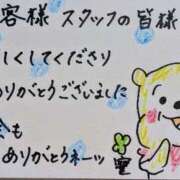 客様 スタッフの皆様
しくしてくださり
ありがとうございました
も
ありがとうネーッ